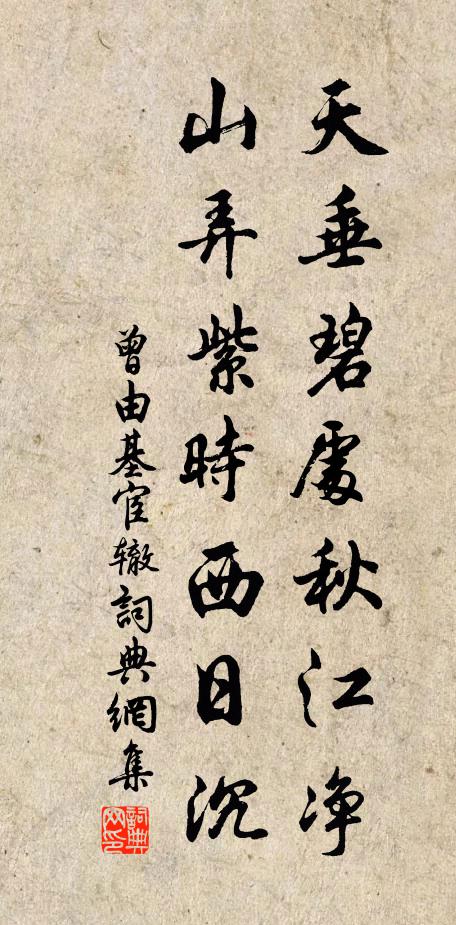 天垂碧處秋江净
山弄紫時西日沉
曾由基宦辙詞典網集
詞典网印